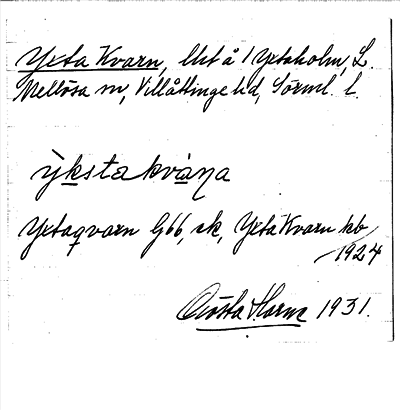 Yxta Kvarn, lht å 1 Yxtaholm, L.
Mellösa sn, Villåttinge hd, Sörml. l.
ỳksta kvàɳa
Yxtaqvarn G66, sk, Yxta Kvarn kb
1924
Gösta Horn 1931.